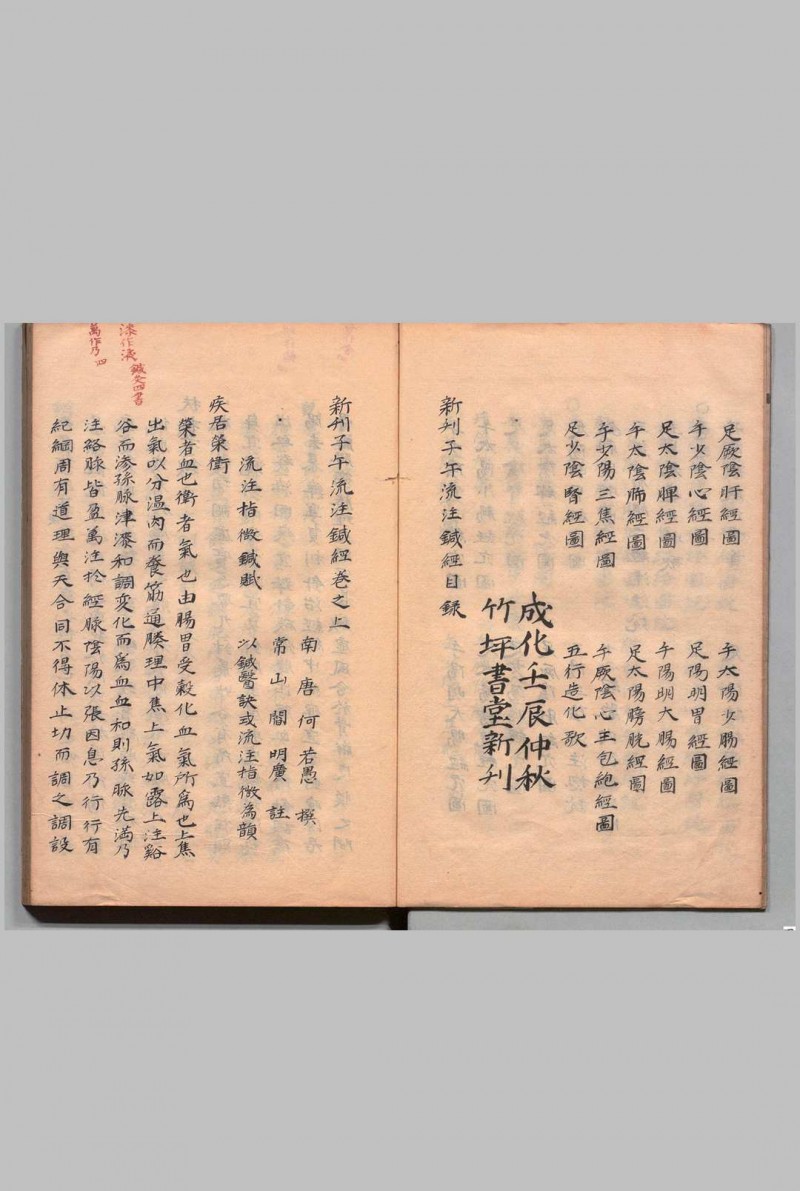 足厥陰肝經圖　手太陽少腸經圖
手少陰心經圖　足陽明胃經圖
足太陰脾經圖　手陽明大腸經圖
手太陰肺經圖　足太陽膀胱經圖
手少陽三焦經圖　手厥陰心主包絡經圖
足少陰腎經圖　五行造化歌
成化壬辰仲秋
竹坪書堂新刋
新刋子午流注鍼經目錄
新刋子午流注鍼經卷之上
南唐何若愚撰
常山閻明廣註
流注指微鍼賦　以鍼醫訣式流注指微為韻
疾居榮衝
榮者血也衝者氣也由腸胃受穀化血氣所爲也上焦
出氣以分温肉而養筋通腠理中焦上氣如露上注谿
谷而渗孫脉津漆和調変化而爲血血和則孫脉先満乃
注絡脉皆盈萬注扵經脉陰陽以張因息乃行行有
紀綱周有道理與天合同不得休止切而調之調設
漆作液　鍼灸四書
萬作乃　四